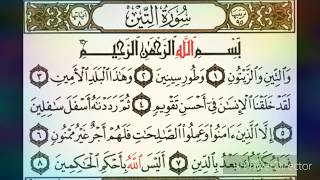 سُورَةُ التِّينِ
بِسْمِ اللَّهِ الرَّحْمَٰنِ الرَّحِيمِ
وَالتِّينِ وَالزَّيْتُونِ ١ وَطُورِ سِينِينَ ٢ وَهَٰذَا الْبَلَدِ الْأَمِينِ ٣
لَقَدْ خَلَقْنَا الْإِنسَٰنَ فِي أَحْسَنِ تَقْوِيمٍ ٤ ثُمَّ رَدَدْنَٰهُ أَسْفَلَ سَٰفِلِينَ ٥
إِلَّا الَّذِينَ ءَامَنُوا وَعَمِلُوا الصَّٰلِحَٰتِ فَلَهُمْ أَجْرٌ غَيْرُ مَمْنُونٍ ٦
فَمَا يُكَذِّبُكَ بَعْدُ بِالدِّينِ ٧ أَلَيْسَ اللَّهُ بِأَحْكَمِ الْحَٰكِمِينَ ٨